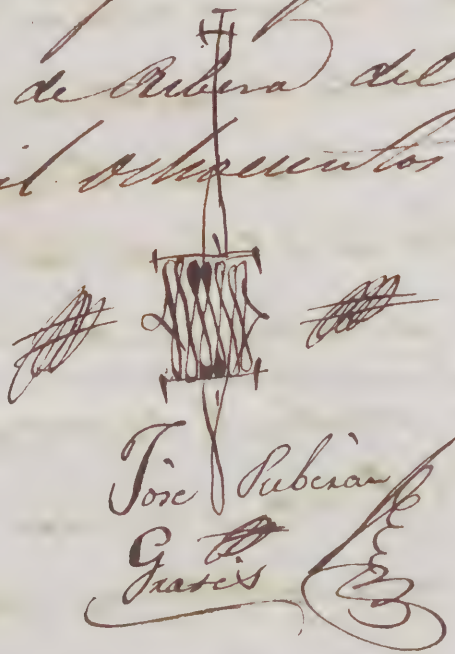 de Ribera del
il ochocientos
José
Gratis